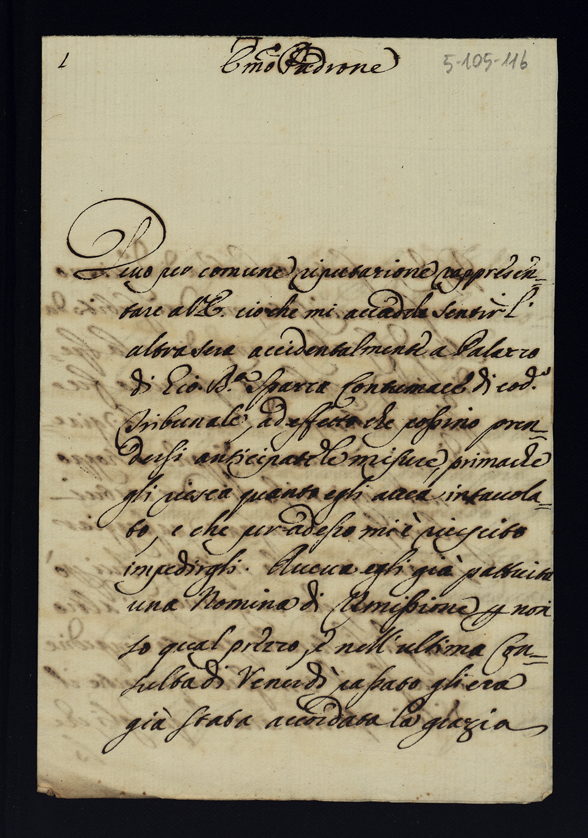 1
Emo Padrone
5-105-116
Devo per comune riputazione rappresen=
tare a V.E. ciò che mi accadde sentir l'
altra sera accidentalmente a Palazzo
di Gio. Bta Sparca Contumace di cod.o
Tribunale, ad effetto che possino pren=
dersi anticipate le misure, prima che
gli riesca quanto egli avea intavola=
to, e che per adesso mi è riuscito
impedirgli. Aveva egli già pattuita
una Nomina di Remissione p non
so qual prezzo, e nell'ultima Con=
sulta di Venerdì passato gli era
già stata accordata la grazia